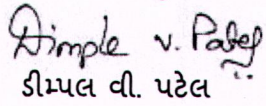 Dimple v. Patel
ડીમ્પલ વી. પટેલ